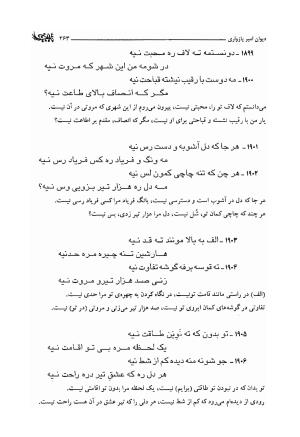 دیوان امیر پازواری ۲۶۳
۱۸۹۹ - دونستمه ته لاف ره محبت نیه
در شومه من این شهر که مروت نیه
۱۹۰۰ - مه دوست با رقیب نیشته قباحت نیه
مگر که انصاف بالای طاعت نیه؟
می‌دانستم که لاف تو را، محبتی نیست، بیرون می‌روم از این شهری که مروتی در آن نیست.
یار من با رقیب نشسته و قباحتی برای او نیست، مگر که انصاف، مقدم بر اطاعت نیست؟
۱۹۰۱ - هر جا که دل آشوبه و دست رس نیه
مه ونگ و فریاد ره کس فریاد رس نیه
۱۹۰۲ - هر چن که ته چاچی کمون لس نیه
مه دل ره هزار تیر بزویی وس نیه؟
هر جا که دل در آشوب است و دسترسی نیست، بانگ فریاد مرا کسی فریاد رسی نیست.
هر چند که چاچی کمان تو، شُل نیست، دل مرا هزار تیر زدی، بس نیست؟
۱۹۰۳ - الف به بالا مونند ته قد نیه
هارشین تنه چیره مره حدنیه
۱۹۰۴ - ته قوسه برفه گوشه تفاوت نیه
زنی صد هزار تیرو مروت نیه
(الف) در راستی مانند قامت تونیست، در نگاه کردن به چهره‌ی تو مرا حدی نیست.
تفاوتی در گوشه‌های کمان ابروی تو نیست، صد هزار تیر می‌زنی و مروتی (در تو) نیست.
۱۹۰۵ - تو بدون که ته نویَن طاقت نیه
یک لحظه مره بی تو اقامت نیه
۱۹۰۶ - جو شونه منه دیده کم از شط نیه
هر دل ره که عشق تیر دره راحت نیه
تو بدان که در نبودن تو طاقتی (برایم) نیست، یک لحظه مرا بدون تو اقامتی نیست.
رودی از دیده‌ام می‌رود که کم از شط نیست، هر دلی را که تیر عشق در آن هست راحت نیست.